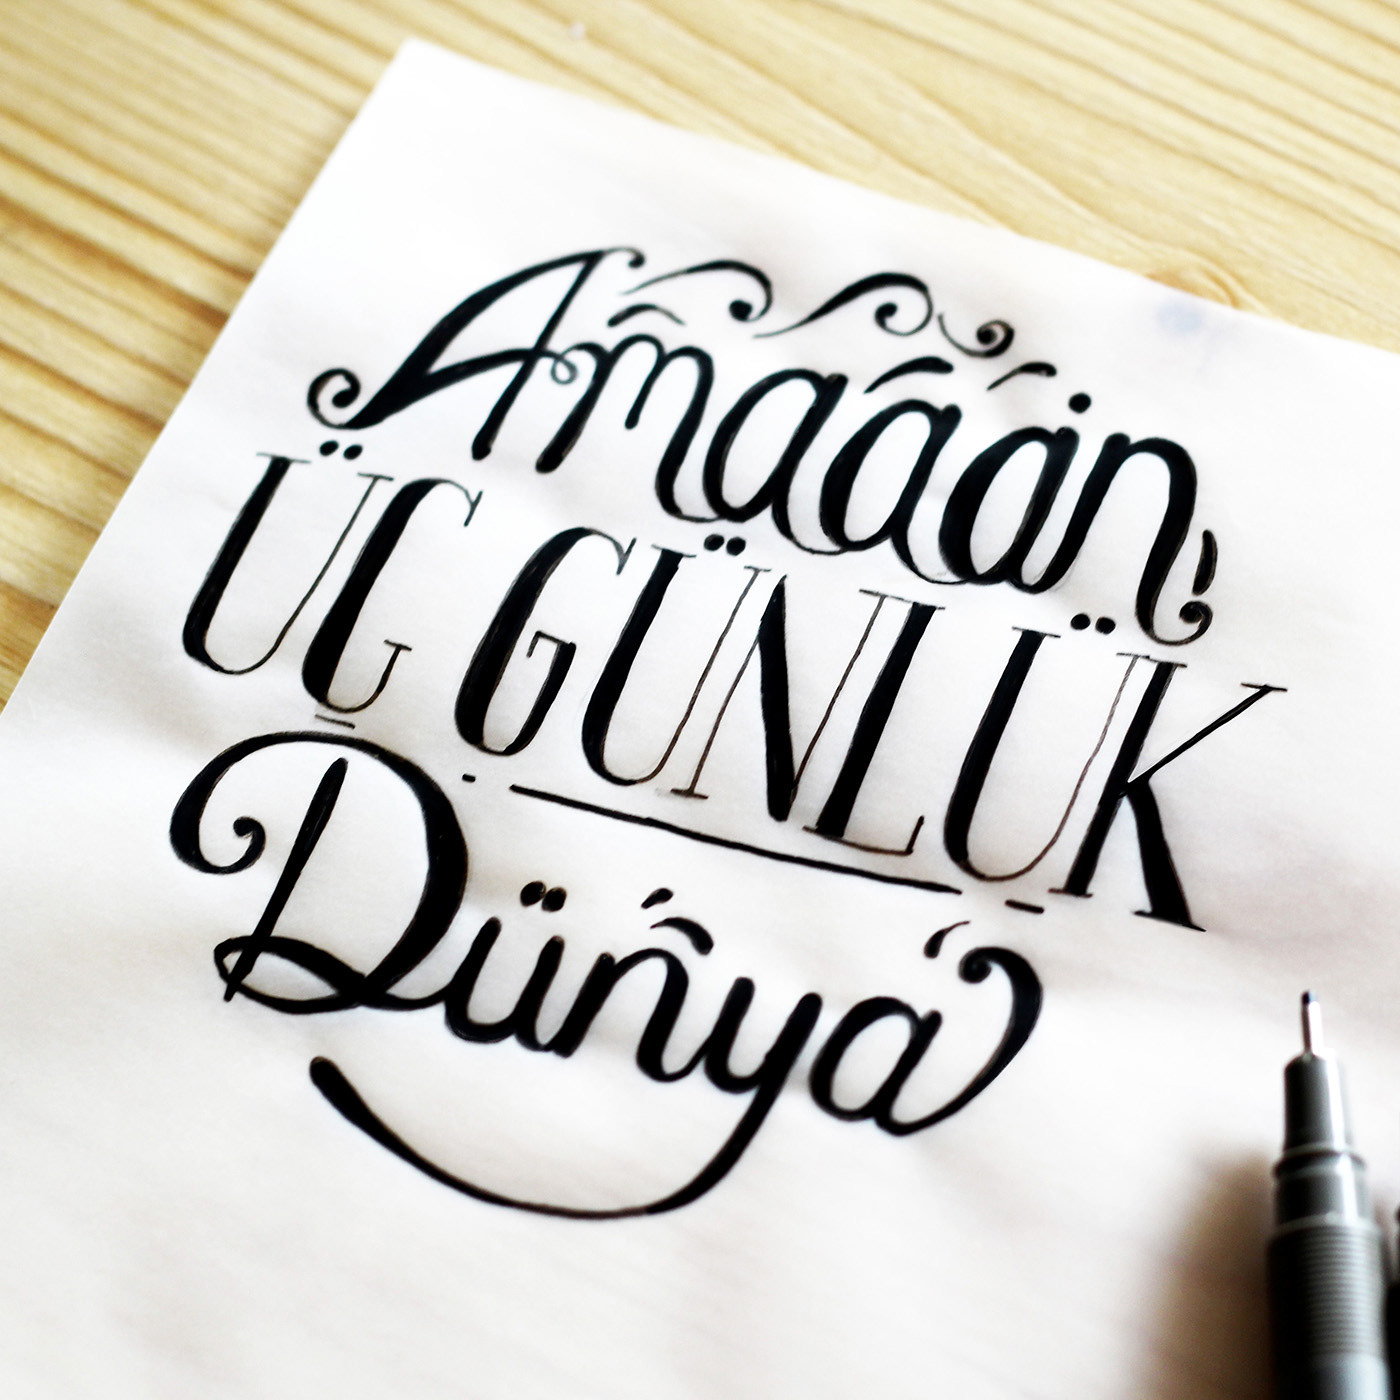 Amaaan,
ÜÇ GÜNLÜK
Dünya